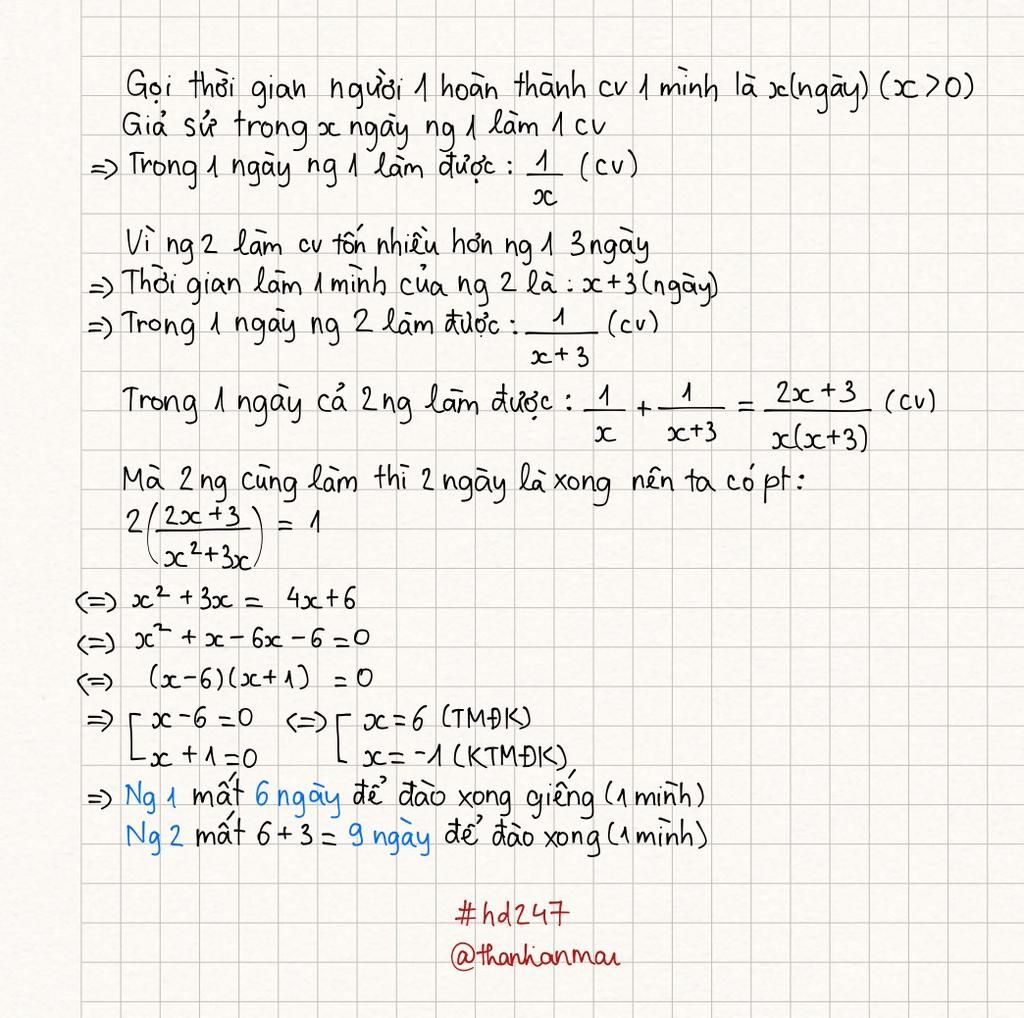 Gọi thời gian người 1 hoàn thành cv 1 mình là x(ngày) (x>0)
Giả sử trong x ngày ng 1 làm 1 cv
=> Trong 1 ngày ng 1 làm được : 1/x (cv)
Vì ng 2 làm cv tốn nhiều hơn ng 1 3 ngày
=> Thời gian làm 1 mình của ng 2 là : x+3 (ngày)
=> Trong 1 ngày ng 2 làm được : 1/(x+3) (cv)
Trong 1 ngày cả 2 ng làm được : 1/x + 1/(x+3) = (2x+3)/(x(x+3)) (cv)
Mà 2 ng cùng làm thì 2 ngày là xong nên ta có pt :
2((2x+3)/(x²+3x)) = 1
<=> x² + 3x = 4x+6
<=> x² + x - 6x - 6 = 0
<=> (x-6)(x+1) = 0
=> [ x - 6 = 0 <=> [ x = 6 (TMĐK)
x + 1 = 0 x = -1 (KTMĐK)
=> Ng 1 mất 6 ngày để đào xong giếng (1 mình)
Ng 2 mất 6 + 3 = 9 ngày để đào xong (1 mình)
#hd247
@thanhanmai